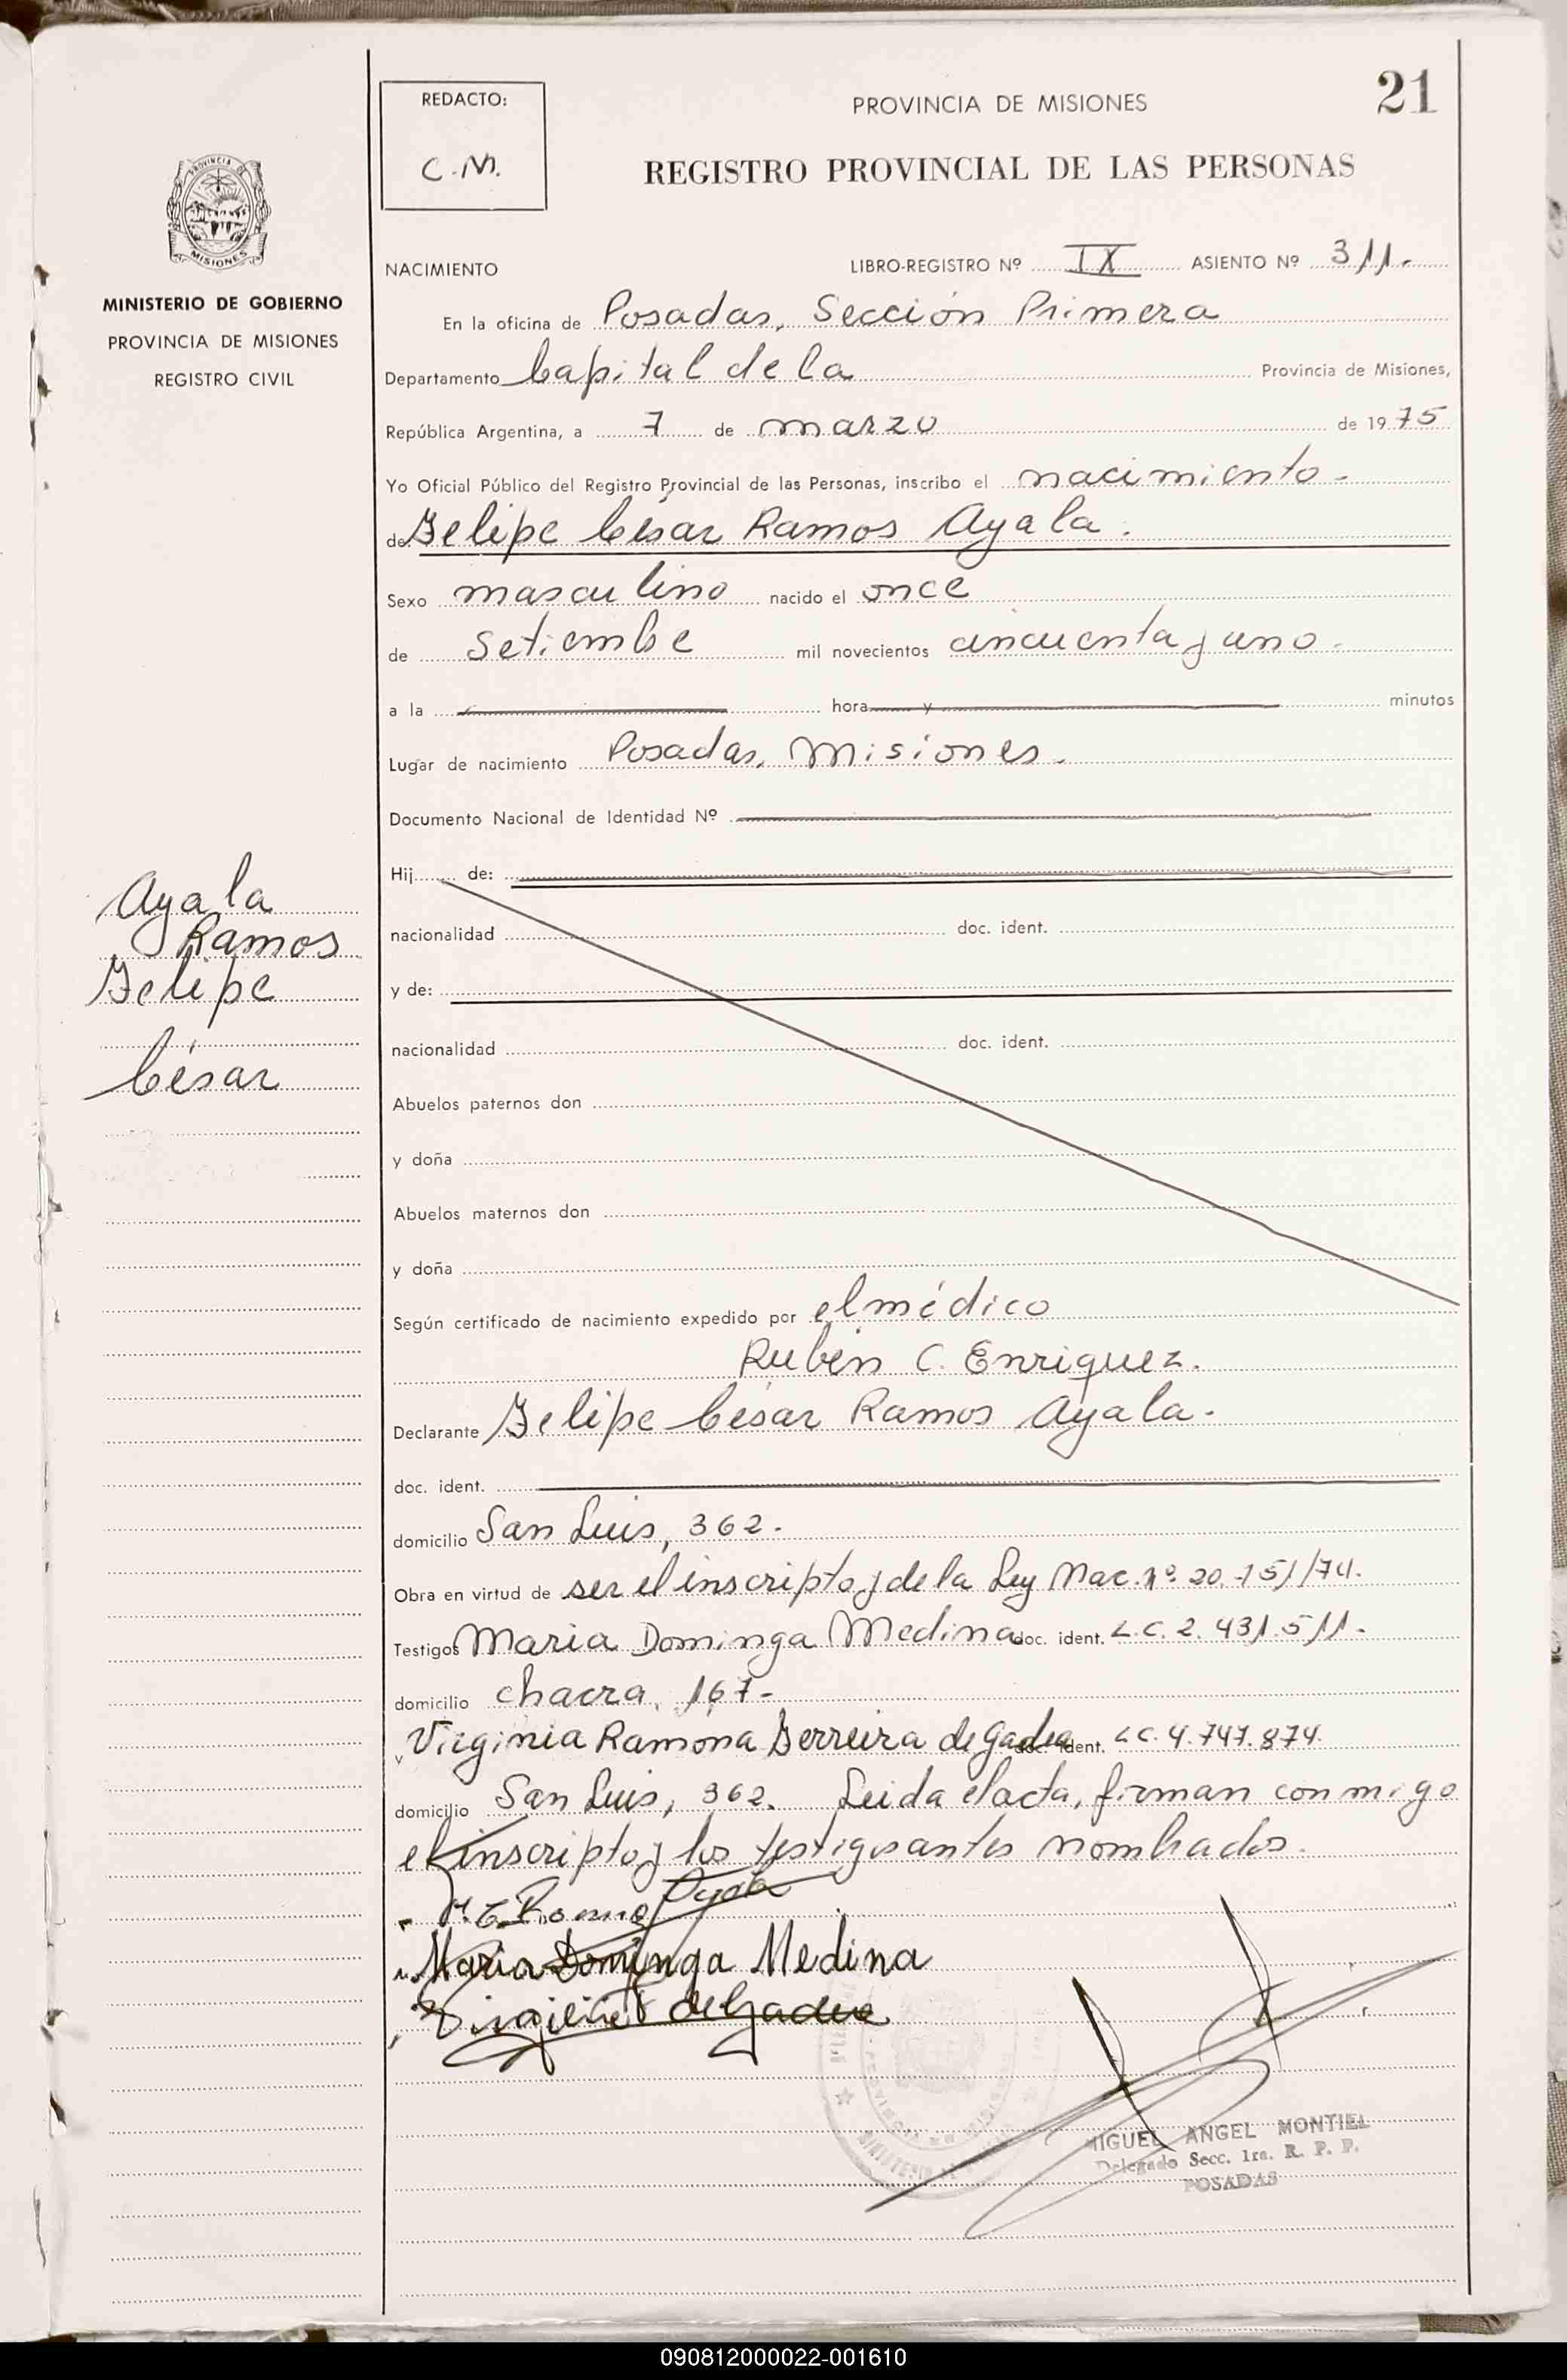 21
REDACTO:
C.M.
PROVINCIA DE MISIONES
REGISTRO PROVINCIAL DE LAS PERSONAS
PROVINCIA DE
MISIONES
MINISTERIO DE GOBIERNO
PROVINCIA DE MISIONES
REGISTRO CIVIL
NACIMIENTO LIBRO-REGISTRO Nº IX ASIENTO Nº 311.
En la oficina de Posadas, Sección Primera
Departamento Capital de la Provincia de Misiones,
República Argentina, a 7 de marzo de 1975
Yo Oficial Público del Registro Provincial de las Personas, inscribo el nacimiento-
de Felipe César Ramos Ayala.
Sexo masculino nacido el once
de Setiembe mil novecientos cincuenta y uno.
a la hora y minutos
Lugar de nacimiento Posadas, Misiones.
Documento Nacional de Identidad Nº
Hij de:
nacionalidad doc. ident.
y de:
nacionalidad doc. ident.
Abuelos paternos don
y doña
Abuelos maternos don
y doña
Ayala
Ramos
Felipe
César
Según certificado de nacimiento expedido por el médico
Rubén C. Enriquez.
Declarante Felipe César Ramos Ayala.
doc. ident.
domicilio San Luis, 362.
Obra en virtud de ser el inscripto y de la Ley Nac. nº 20.751/74.
Testigos Maria Dominga Medina doc. ident. L.C. 2.431.511.
domicilio chacra, 167-
y Virginia Ramona Ferreira de Gadea doc. ident. L.C. 4.747.874.
domicilio San Luis, 362. Leida el acta, firman conmigo
el inscripto y los testigos antes nombrados.
Ayala
Maria Dominga Medina
de Gadea
MIGUEL ANGEL MONTIEL
Delegado Secc. 1ra. R. P. P.
POSADAS
090812000022-001610